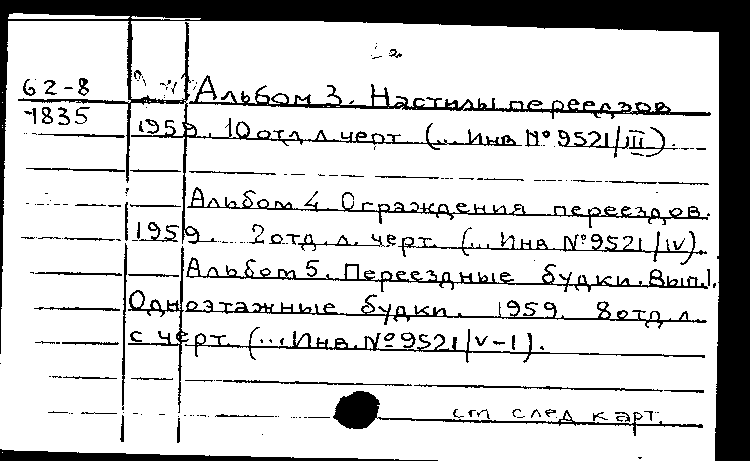 62-8
1835
Альбом 3. Настилы переездов
1959. 10 отд. л. черт. (... Инв. № 9521/III).
Альбом 4. Ограждения переездов.
1959. 2 отд. л. черт. (... Инв. № 9521/IV).
Альбом 5. Переездные будки. Вып. 1.
Одноэтажные будки. 1959. 8 отд. л.
с черт. (... Инв. № 9521/V-I).
см след карт.